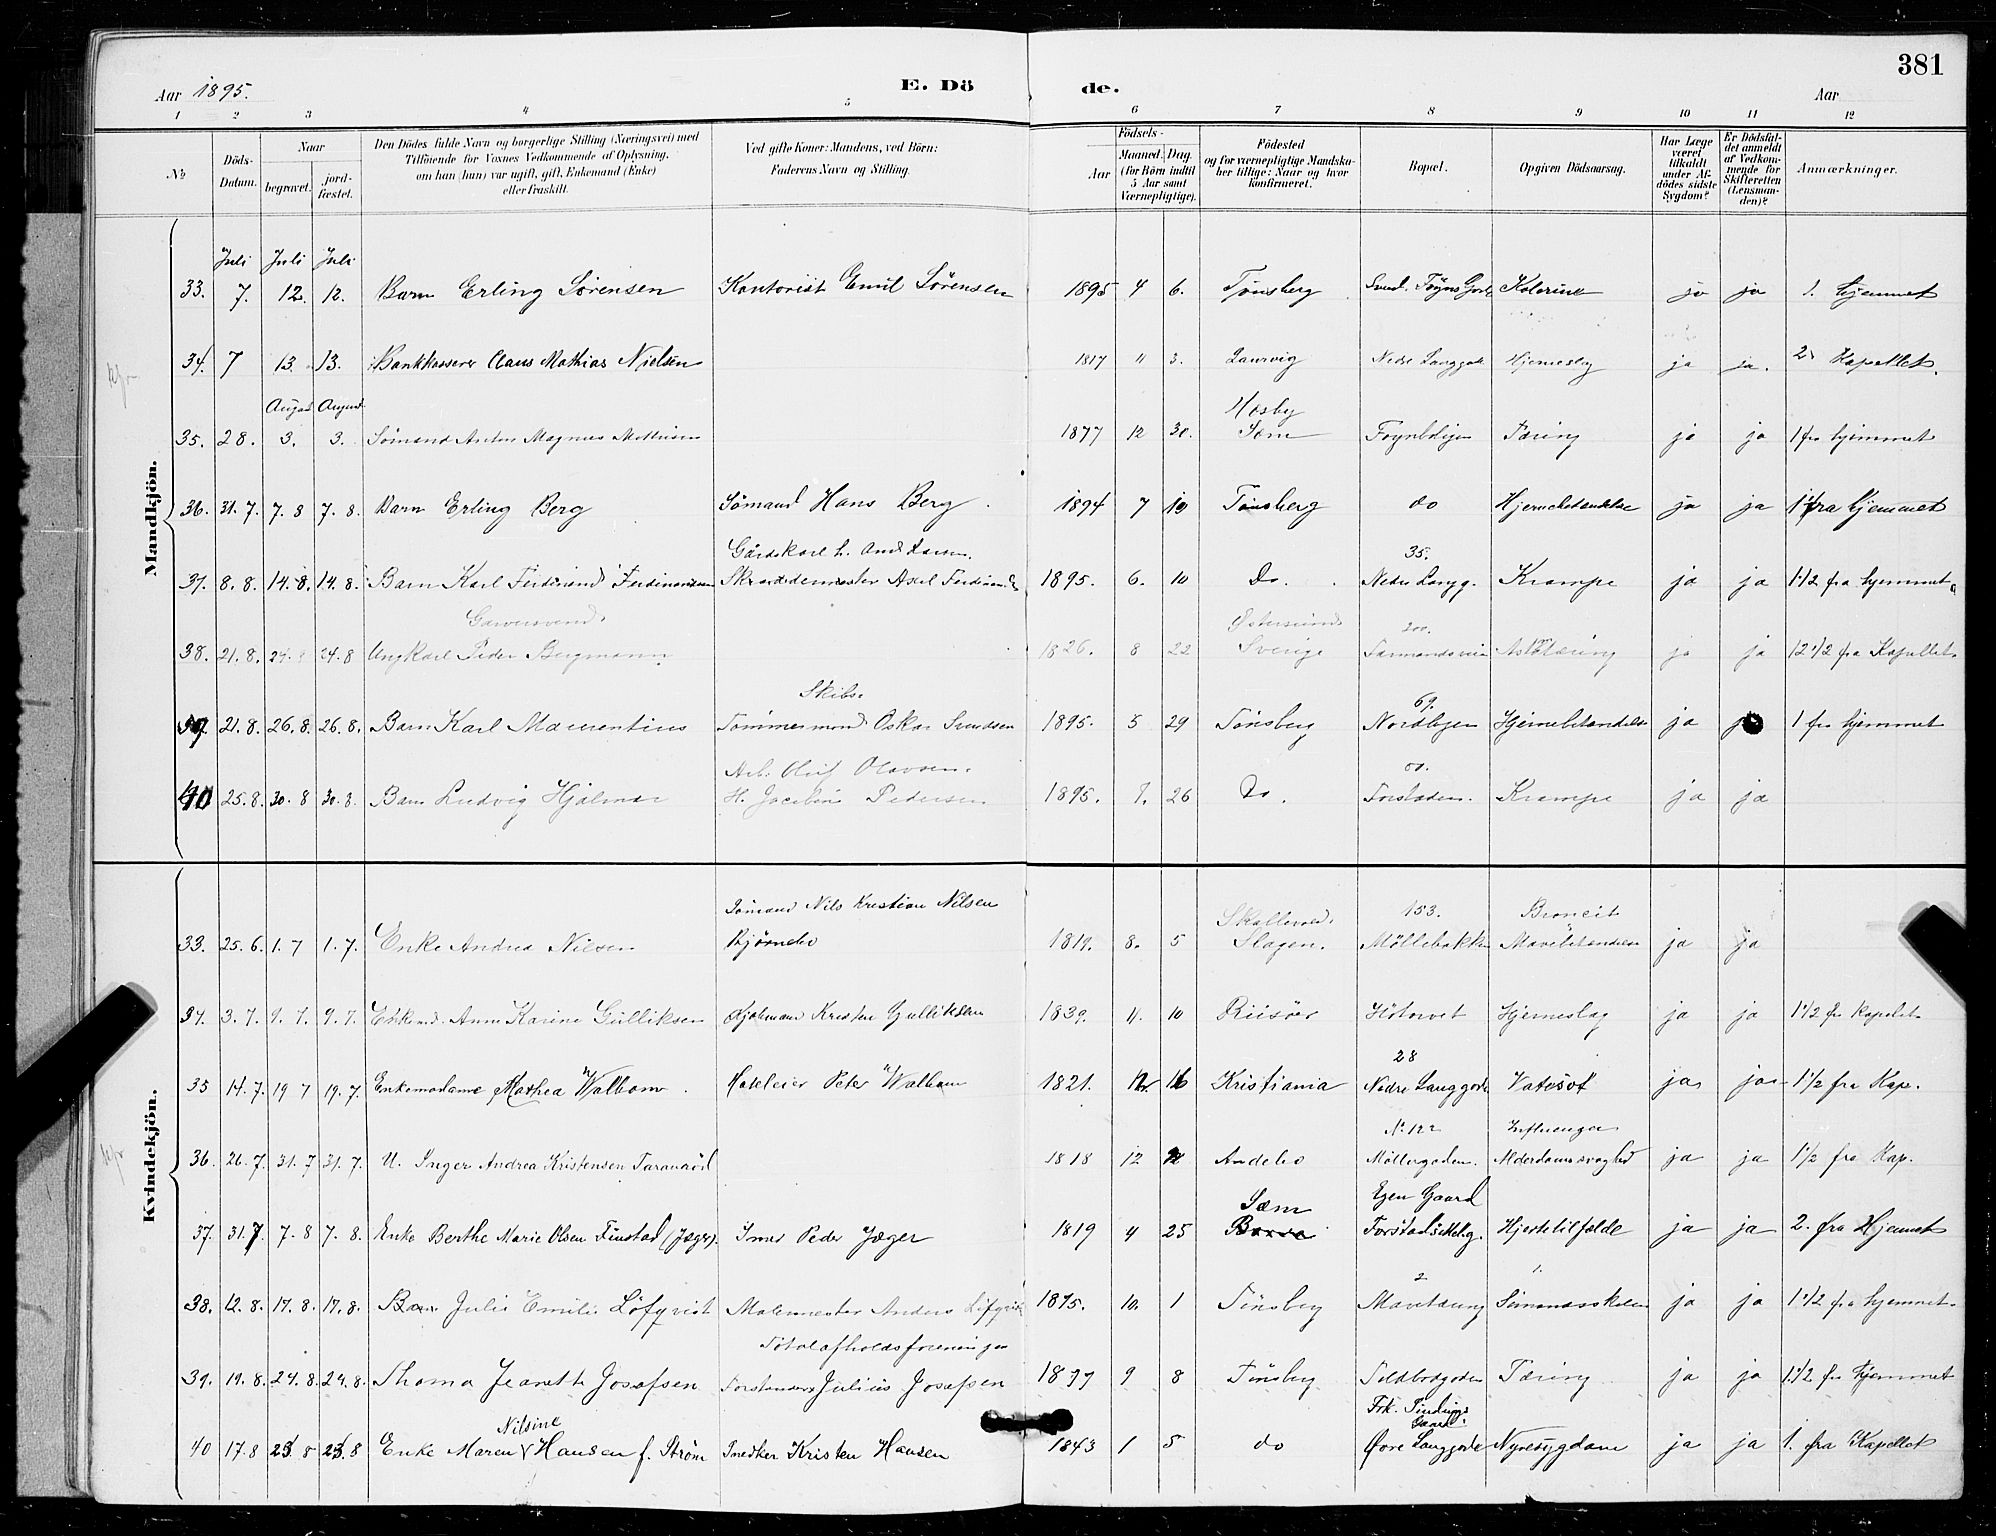 381
Aar 1895. E. Dö de. Aar
1 2 3 4 5 6 7 8 9 10 11 12
No Döds-Datum. Naar begravet. jordfæstet. Den Dödes fulde Navn og borgerlige Stilling (Næringsvei) med Tilföiende for Voxnes Vedkommende af Oplysning, om han (hun) var ugift, gift, Enkemand (Enke) eller fraskilt. Ved gifte Koner: Mandens, ved Börn: Faderens Navn og Stilling. Födsels- Aar Maaned. Dag. (for Börn indtil 5 Aar samt Værnepligtige). Födested og for værnepligtige Mandskaber tillige: Naar og hvor konfirmeret. Bopæl. Opgiven Dödsaarsag. Har Læge været tilkaldt under Afdödes sidste Sygdom? Er Dödsfaldet anmeldt af Vedkommende for Skifteretten (Lensmanden)? Anmærkninger.
Mandkjön.
Juli Juli Juli
33. 7. 12. 12. Barn Erling Sörensen Kontorist Emil Sörensen 1895 4 6. Tönsberg Kolerine ja ja 1. hjemmet
34. 7 13. 13. Bankkasserer Claus Mathias Nielsen 1817 11 3. Laurvig Nedre Langgade ja ja. 2 Kapellet.
August August
Mosby
35. 28. 3. 3. Sömand Anton Magnus 1877 12 30. Sem Tæring ja ja 1 fra hjemmet
36. 31.7. 7.8 7.8. Barn Erling Berg Sömand Hans Berg 1894 7 10 Tönsberg do ja ja 1 fra hjemmet
Gårdskarl L. And. Larsen. 35.
37. 8.8. 14.8. 14.8. Barn Karl Ferdinand Ferdinandsen Skræddermester Axel 1895. 6. 10 Do. Nedre Langg. Krampe ja ja 1 1/2 fra hjemmet
Garversvend. Østersund
38. 21.8. 24.8 24.8 Ungkarl Peder Bergmann 1826. 8 22 Sverige ja ja 1 1/2 fra Kapellet.
Skibs- 69.
39. 21.8. 26.8. 26.8. Barn Karl Maurentius Tömmermand Oskar 1895. 5 29 Tönsberg Nordbyen ja ja 1 fra hjemmet
Arb. Oluf Olavsen.
40 25.8. 30.8 30.8. Barn Ludvig Hjalmar H. Jacobine Pedersen 1895. 26 Do. Forstaden. Krampe ja ja
Kvindekjön.
Sömand Nils Kristian Nilsen Skallevold. 153. Broncit
33. 25.6. 1.7 1.7. Enke Andrea Nilsen Björnebo 1819. 8. 5 Slagen. Möllebakken ja ja
34. 3.7. 9.7. 9.7. Enkem. Anne Karine Gulliksen Kristen Gulliksen 1839. 11. 10 Riisöer Hötorvet Hjerneslag ja ja 1 1/2 fr Kapelet
28
35 14.7. 19 7 19.7. Enkemadame Mathea Walbom Hoteleier Peter Walbom 1821. 16 Kristiania Nedre Langgade Vatersot ja ja 1 1/2 fra Kap.
No 122 Influenza
36. 26.7. 31.7 31.7. U. Inger Andrea Kristensen 1818 12 Andebo Möllergaden. Alderdomssvaghed ja ja 1 1/2 fra Kap.
Sem Egen Gaard
37. 31.7 7.8 7.8. Enke Berthe Marie Olsen Finstad (Jæger). Peder Jæger 1819 4 25 Hjertetilfælde ja ja 2. fra Hjemmet
2 1.
38. 12.8. 17.8. 17.8. Barn Julie Emilie Löfqvist Malermester Anders Löfqvist 1895. 10. 1 Tönsberg ja ja 1 1/2 fra hjemmet
Totalafholdsforeningen
39. 19.8. 24.8. 24.8. Thoma Jeanette Josefsen Forstander Julius Josefsen 9 8 Tönsberg Tæring ja ja 1 1/2 fr hjemmet
Nilsine Frk.
40 17.8 23.8 23.8 Enke Maren Hansen f. Ström Snedker Kristen Hansen 1843 1 5 do Övre Langgade Nyresygdom ja ja 1. fra Kapellet